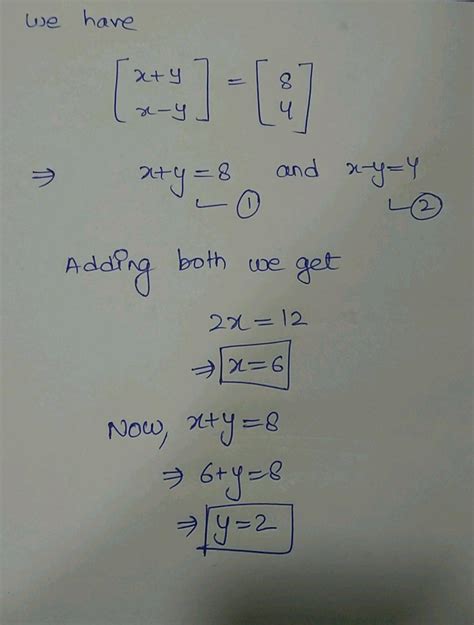 we have
[x+y
x-y] = [8
4]
⇒ x+y=8 and x-y=4
① ②
Adding both we get
2x=12
⇒ x=6
Now, x+y=8
⇒ 6+y=8
⇒ y=2